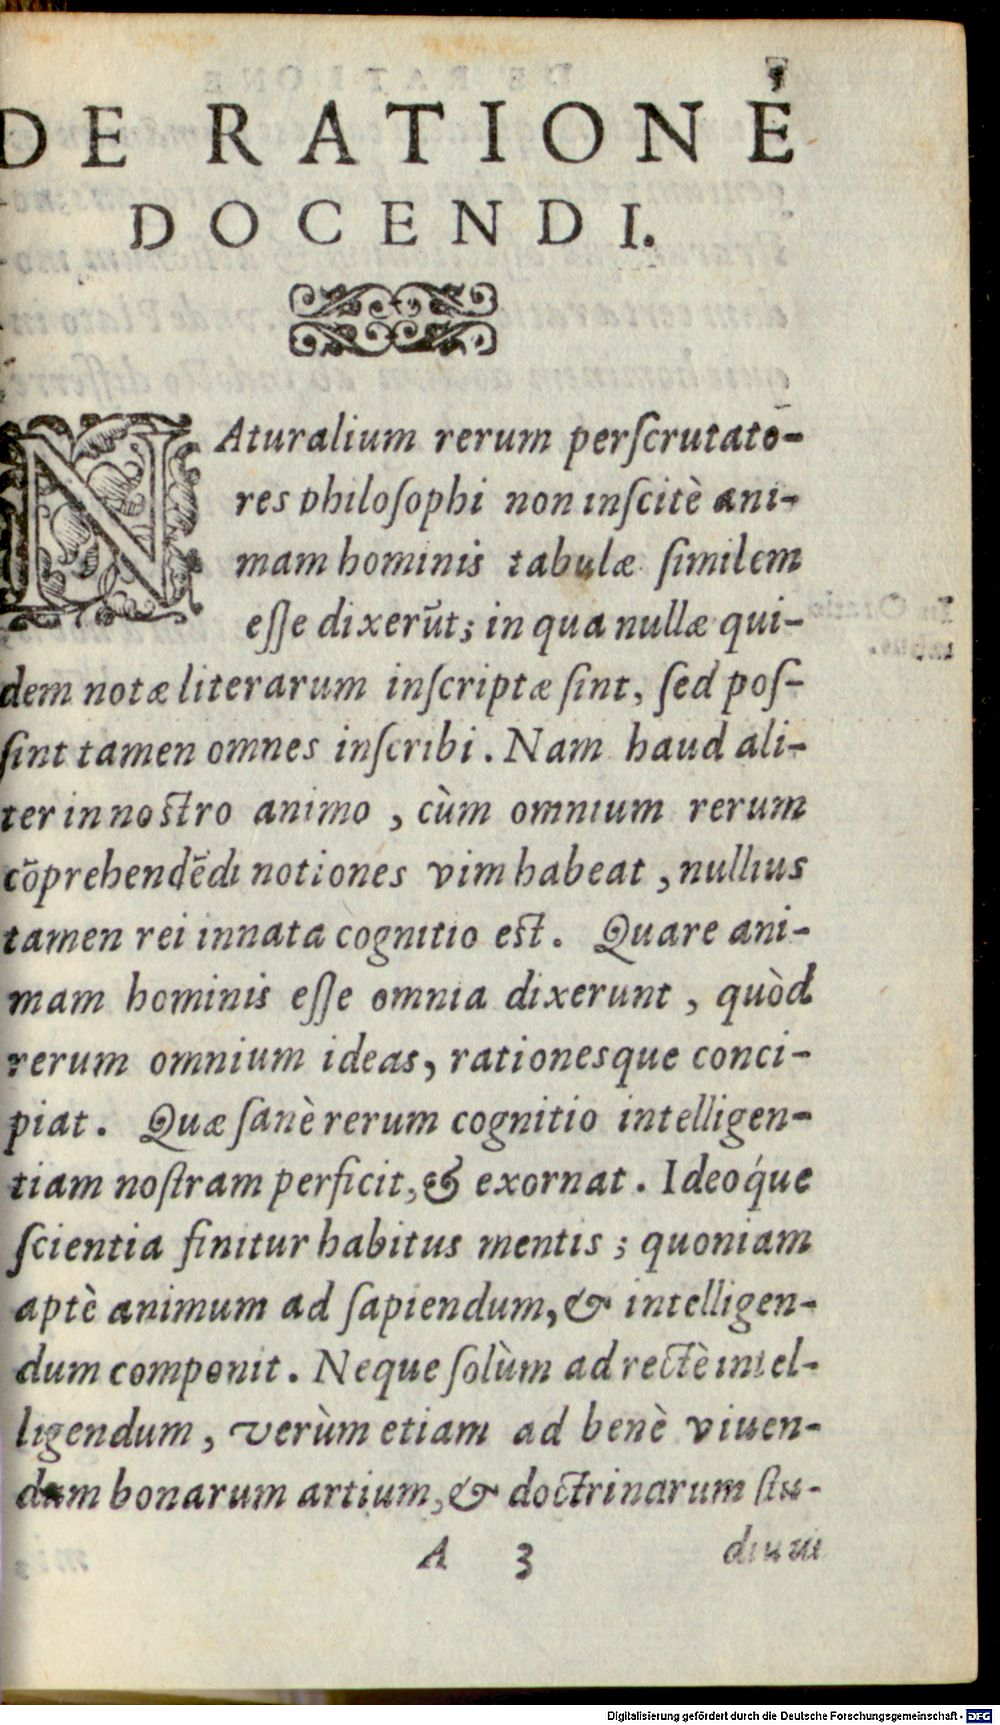 DE RATIONE
DOCENDI.
NAturalium rerum perſcrutato-
res philoſophi non inſcitè ani-
mam hominis tabulæ ſimilem
eſſe dixerũt; in qua nullæ qui-
dem notæ literarum inſcriptæ ſint, ſed poſ-
ſint tamen omnes inſcribi. Nam haud ali-
ter in noſtro animo, cùm omnium rerum
cõprehendẽdi notiones vim habeat, nullius
tamen rei innata cognitio eſt. Quare ani-
mam hominis eſſe omnia dixerunt, quòd
rerum omnium ideas, rationesque conci-
piat. Quæ ſanè rerum cognitio intelligen-
tiam noſtram perficit, & exornat. Ideoq́ue
ſcientia finitur habitus mentis; quoniam
aptè animum ad ſapiendum, & intelligen-
dum componit. Neque ſolùm ad rectè intel-
ligendum, verùm etiam ad benè viuen-
dum bonarum artium, & doctrinarum ſtu-
A 3 dium
Digitalisierung gefördert durch die Deutsche Forschungsgemeinschaft - DFG